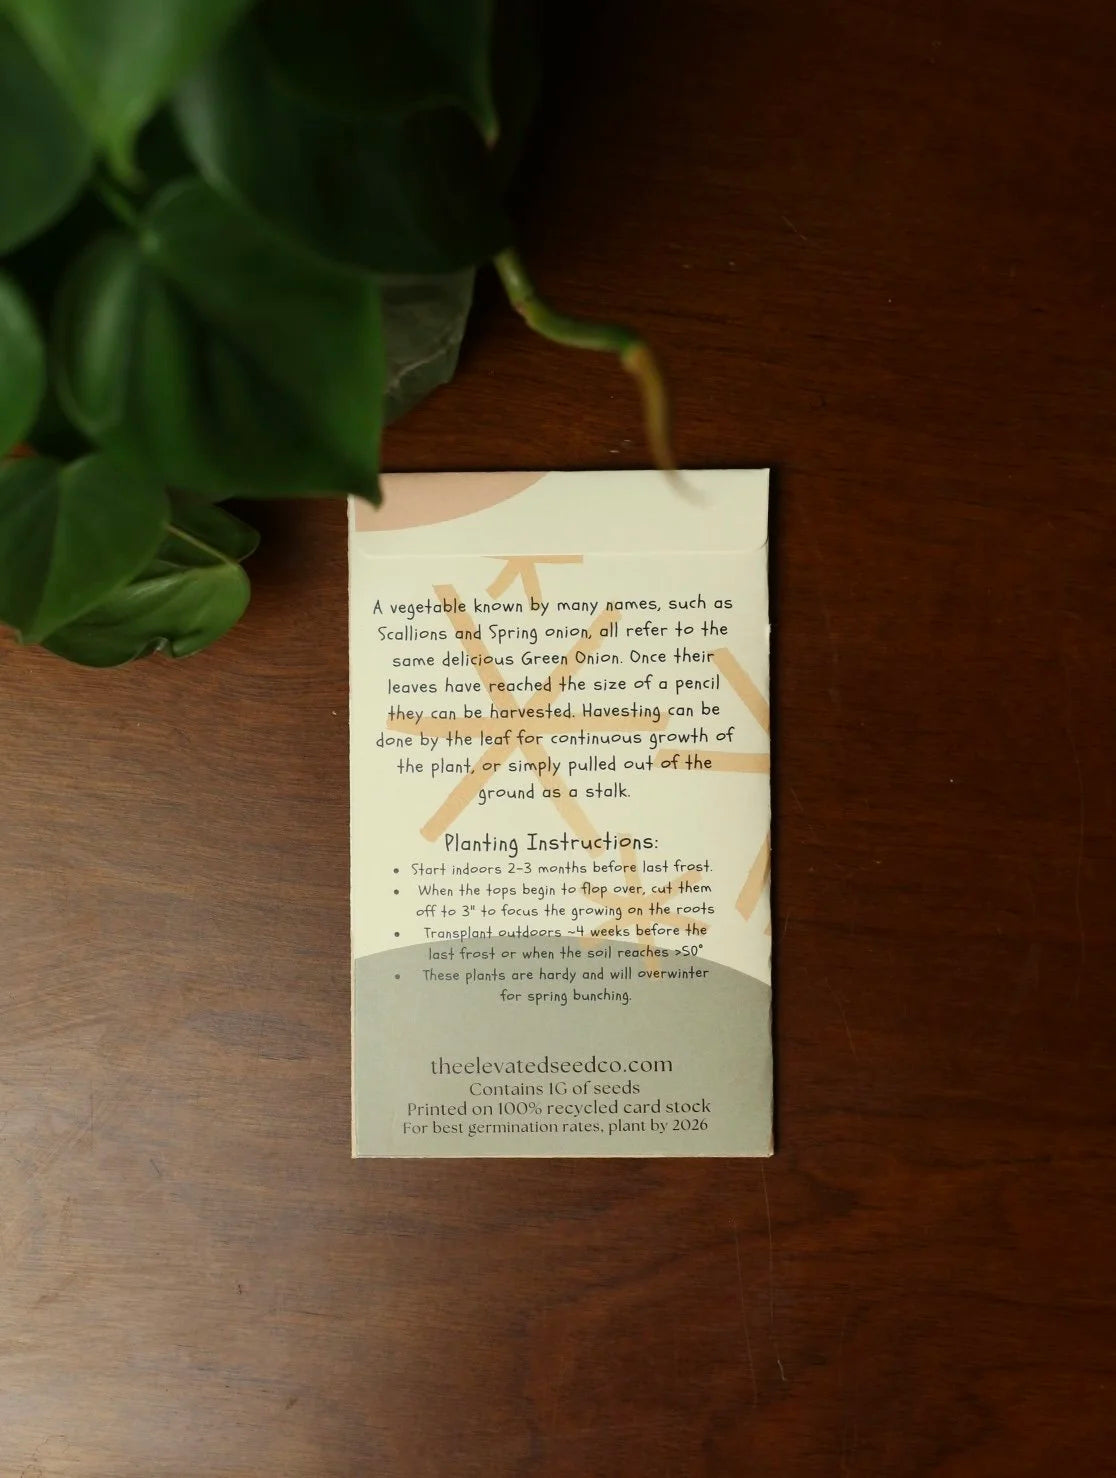 A vegetable known by many names, such as
Scallions and Spring onion, all refer to the
same delicious Green Onion. Once their
leaves have reached the size of a pencil
they can be harvested. Havesting can be
done by the leaf for continuous growth of
the plant, or simply pulled out of the
ground as a stalk.
Planting Instructions:
• Start indoors 2-3 months before last frost.
• When the tops begin to flop over, cut them
off to 3" to focus the growing on the roots
• Transplant outdoors ~4 weeks before the
last frost or when the soil reaches >50°
• These plants are hardy and will overwinter
for spring bunching.
theelevatedseedco.com
Contains 1G of seeds
Printed on 100% recycled card stock
For best germination rates, plant by 2026